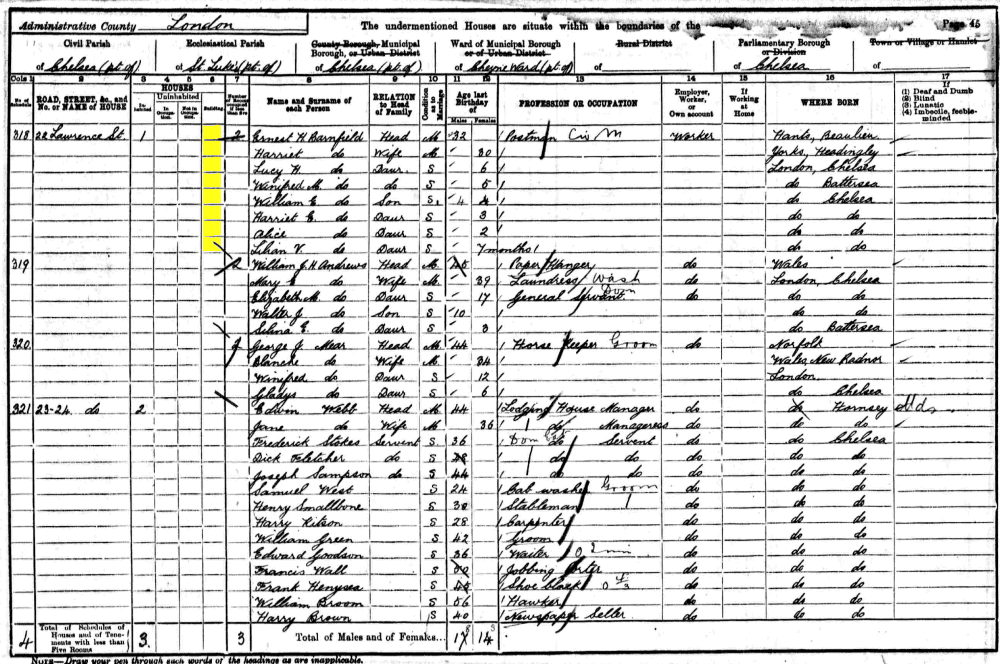 Administrative County London The undermentioned Houses are situate within the boundaries of the Page 45
Civil Parish Ecclesiastical Parish County Borough, Municipal Borough, or Urban District Ward of Municipal Borough or of Urban District Rural District Parliamentary Borough or Division Town or Village or Hamlet
of Chelsea (pt of) of St. Luke's (pt of) of Chelsea (pt of) of Cheyne Ward (pt of) of of Chelsea of
Cols 1 2 3 4 5 6 7 8 9 10 11 12 13 14 15 16 17
No. of Schedule ROAD, STREET, &c., and No. or NAME of HOUSE HOUSES Inhabited Uninhabited In Occupation Not in Occupation Building Number of Rooms occupied if less than five Name and Surname of each Person RELATION to Head of Family Condition as to Marriage Age last Birthday of Males Females PROFESSION OR OCCUPATION Employer, Worker, or Own account If Working at Home WHERE BORN If (1) Deaf and Dumb (2) Blind (3) Lunatic (4) Imbecile, feeble-minded
318 22 Lawrence St. 1 2 Ernest H Barnfield Head M 32 Postman Civ M Worker Hants, Beaulieu
Harriet do Wife M 30 Yorks, Headingley
Lucy H. do Daur. S 6 London, Chelsea
Winifred M. do do S 5 do Battersea
William E do Son S 4 do Chelsea
Harriet E. do Daur S 3 do do
Alice do Daur S 2 do do
Lilian V. do Daur S 7 months do do
319 2 William J. H Andrews Head M 45 Paper Hanger do Wales
Mary E do Wife M 39 Laundress Wash do London, Chelsea
Elizabeth M. do Daur S 17 General Servant Dom do do do
Walter J. do Son S 10 do do
Selina E. do Daur S 3 do Battersea
320 2 George J. Mear Head M 44 Horse Keeper Groom do Norfolk
Blanche do Wife M 34 Wales, New Radnor
Winifred do Daur S 12 London
Gladys do Daur S 6 do Chelsea
321 23-24 do 2 Edwin Webb Head M 44 Lodging House Manager do do Hornsey
Jane do Wife M 36 do Manageress do do do
Frederick Stokes Servent S 36 Dom do Servent do do Chelsea
Dick Fletcher do S 28 do do do do do
Joseph Sampson do S 44 do do do do do
Samuel West S 24 Cab washer Groom do do do
Henry Smallbone S 30 Stableman do do do
Harry Kitson S 28 Carpenter do do do
William Green S 42 Groom do do do
Edward Goodson S 36 Waiter do do do
Francis Wall S Jobbing Porter do do do
Frank Henysea S Shoe black do do do
William Broom S 56 Hawker do do do
Harry Brown S 40 Newspaper Seller do do do
4 Total of Schedules of Houses and of Tenements with less than Five Rooms 3 3 Total of Males and of Females... 17 14
NOTE—Draw your pen through such words of the headings as are inapplicable.